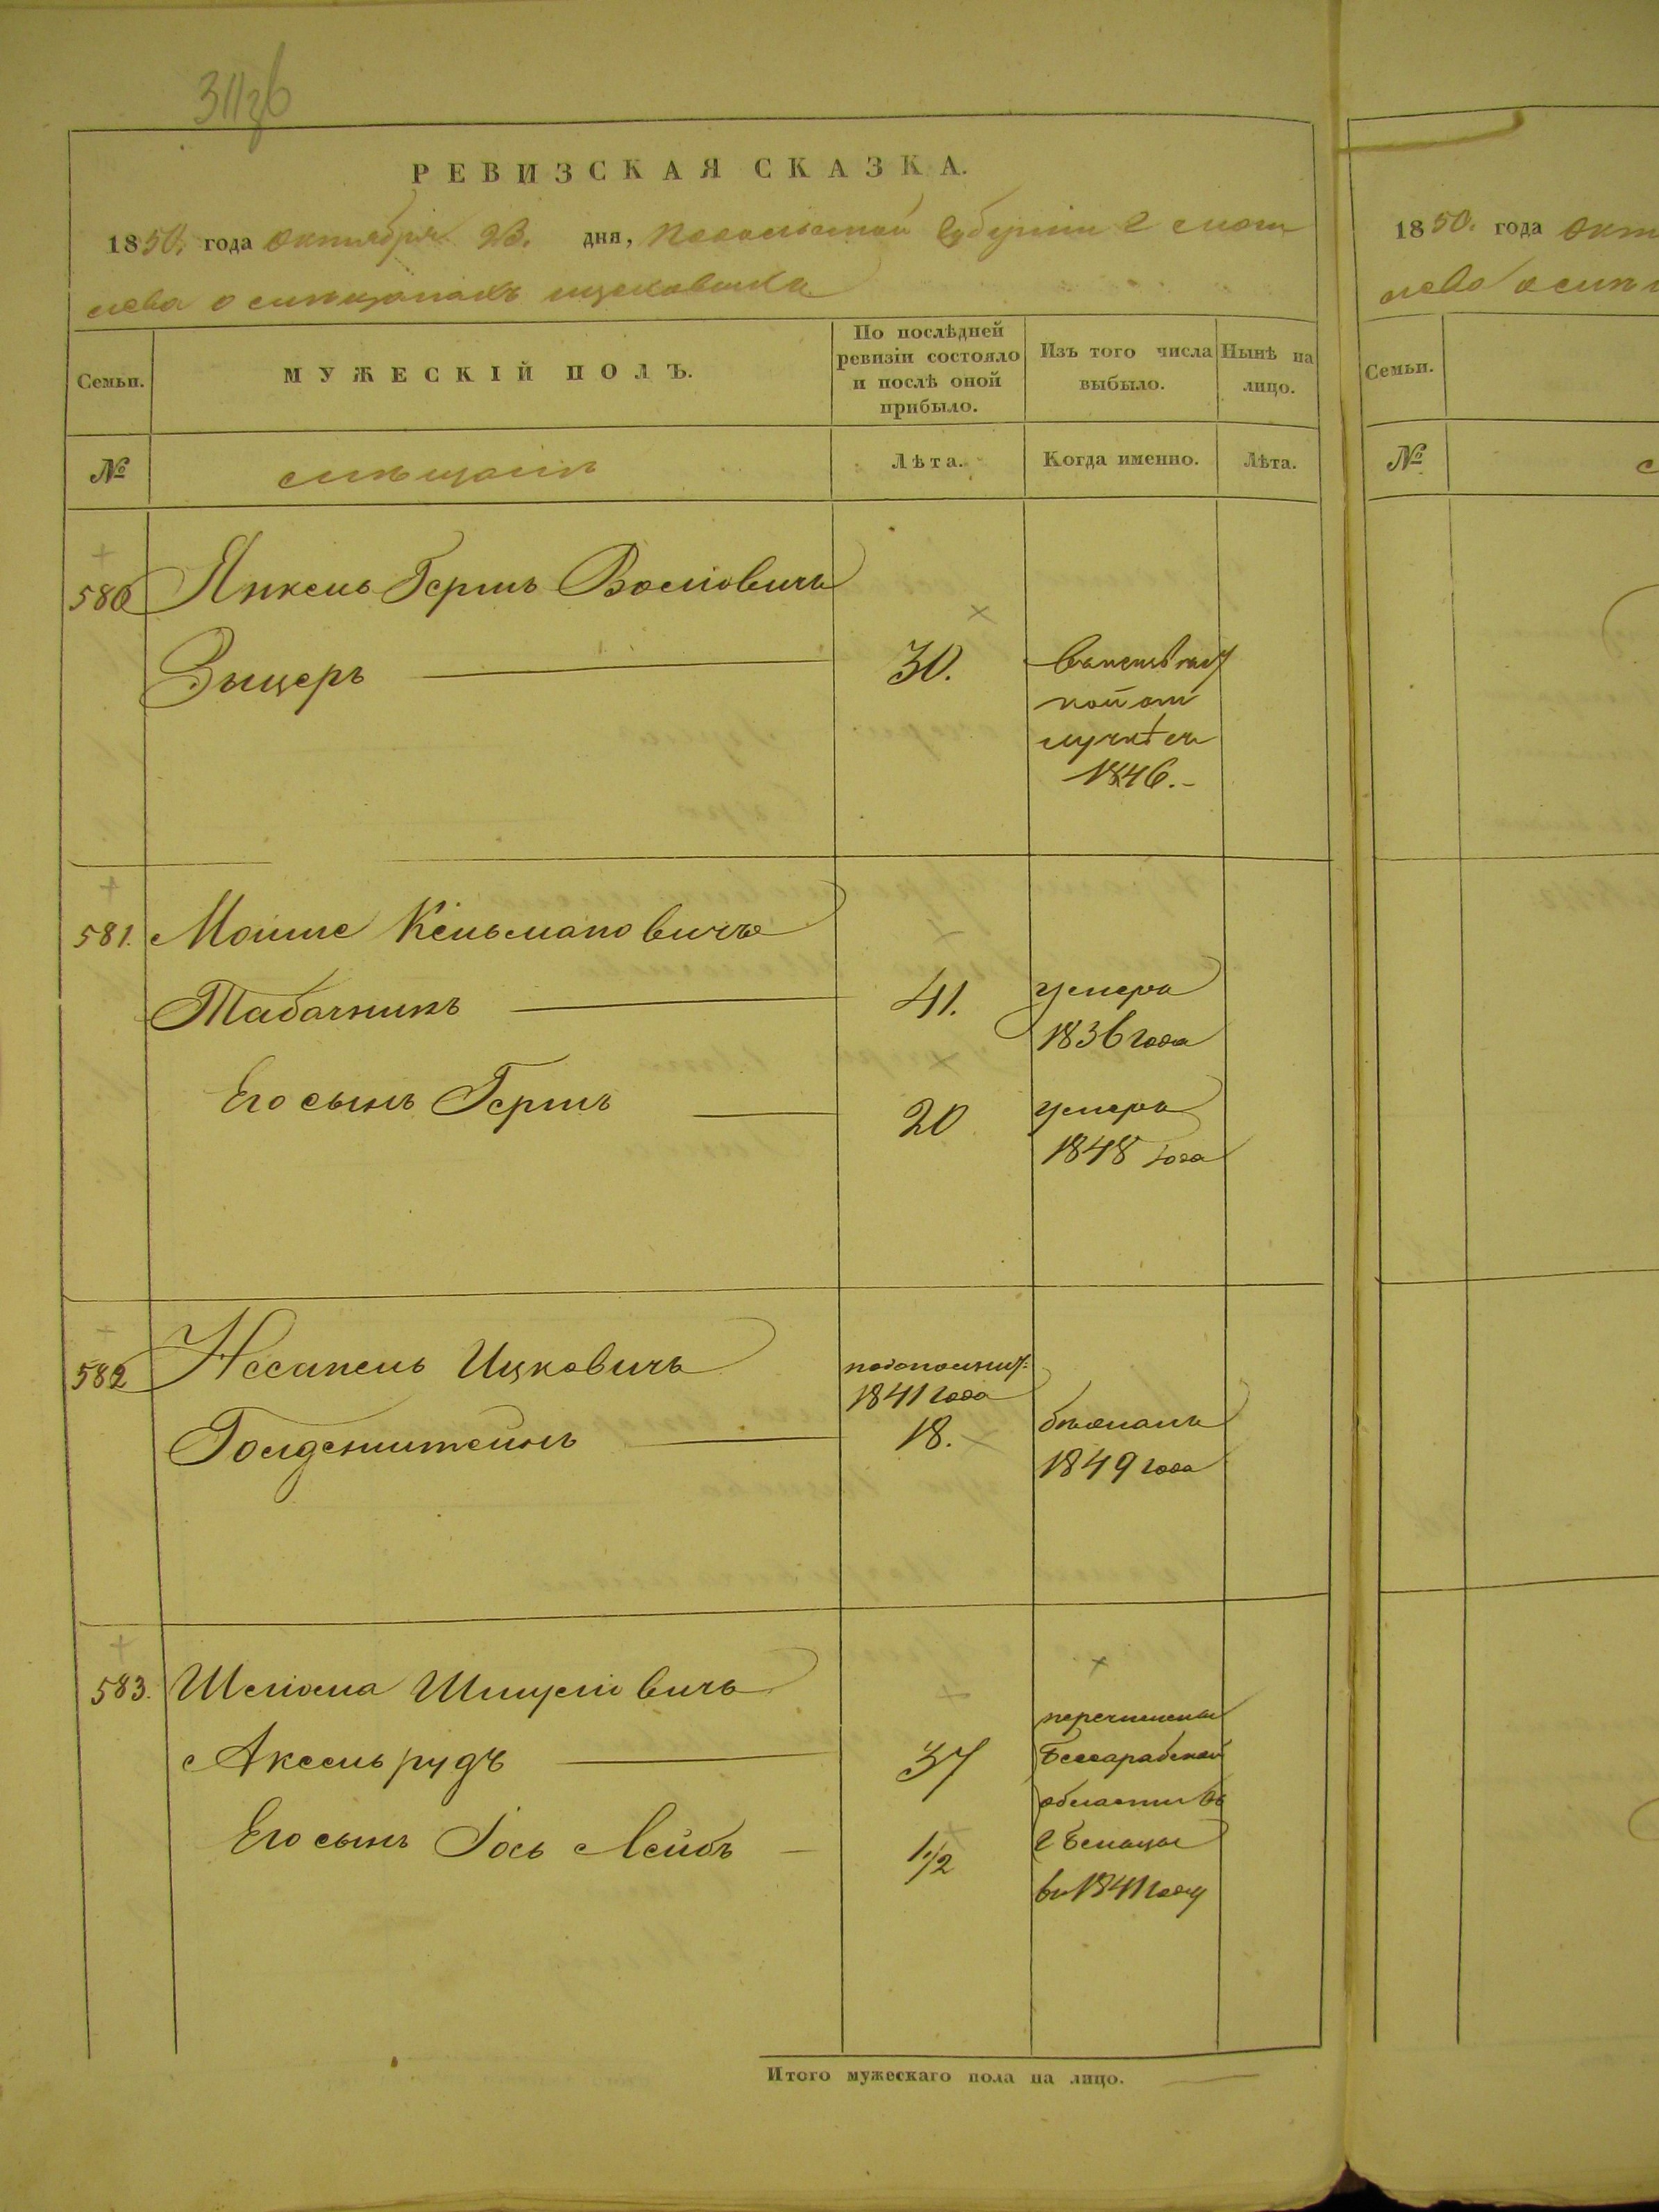 РЕВИЗСКАЯ СКАЗКА.
1850. года октября 23. дня, Подольской Губернии г моги
лева о мѣщанахъ
Семьи.
МУЖЕСКІЙ ПОЛЪ.
По послѣдней
ревизіи состояло
и послѣ оной
прибыло.
Изъ того числа
выбыло.
Нынѣ на
лицо.
№
мѣщанъ
Лѣта.
Когда именно.
Лѣта.
580
Янкель Гершъ Вольовичъ
Зыцеръ
30.
отлучкѣ съ
1846.
581.
Мошше Кельмановичъ
Табачникъ
41.
умеръ
1836 года
Его сынъ Гершъ
20
умеръ
1848 года
582
Несанель Ицковичъ
Голденштейнъ
пополнит:
1841 года
18.
1849 года
583.
Шеліома Шмуеліовичъ
Аксельрудъ
37
перечислены
Бессарабской
области въ
г Бельцы
въ 1841 году
Его сынъ Іось Лейбъ
1 1/2
Итого мужескаго пола на лицо.
1850. года окт
лева о мѣщ
Семьи.
№